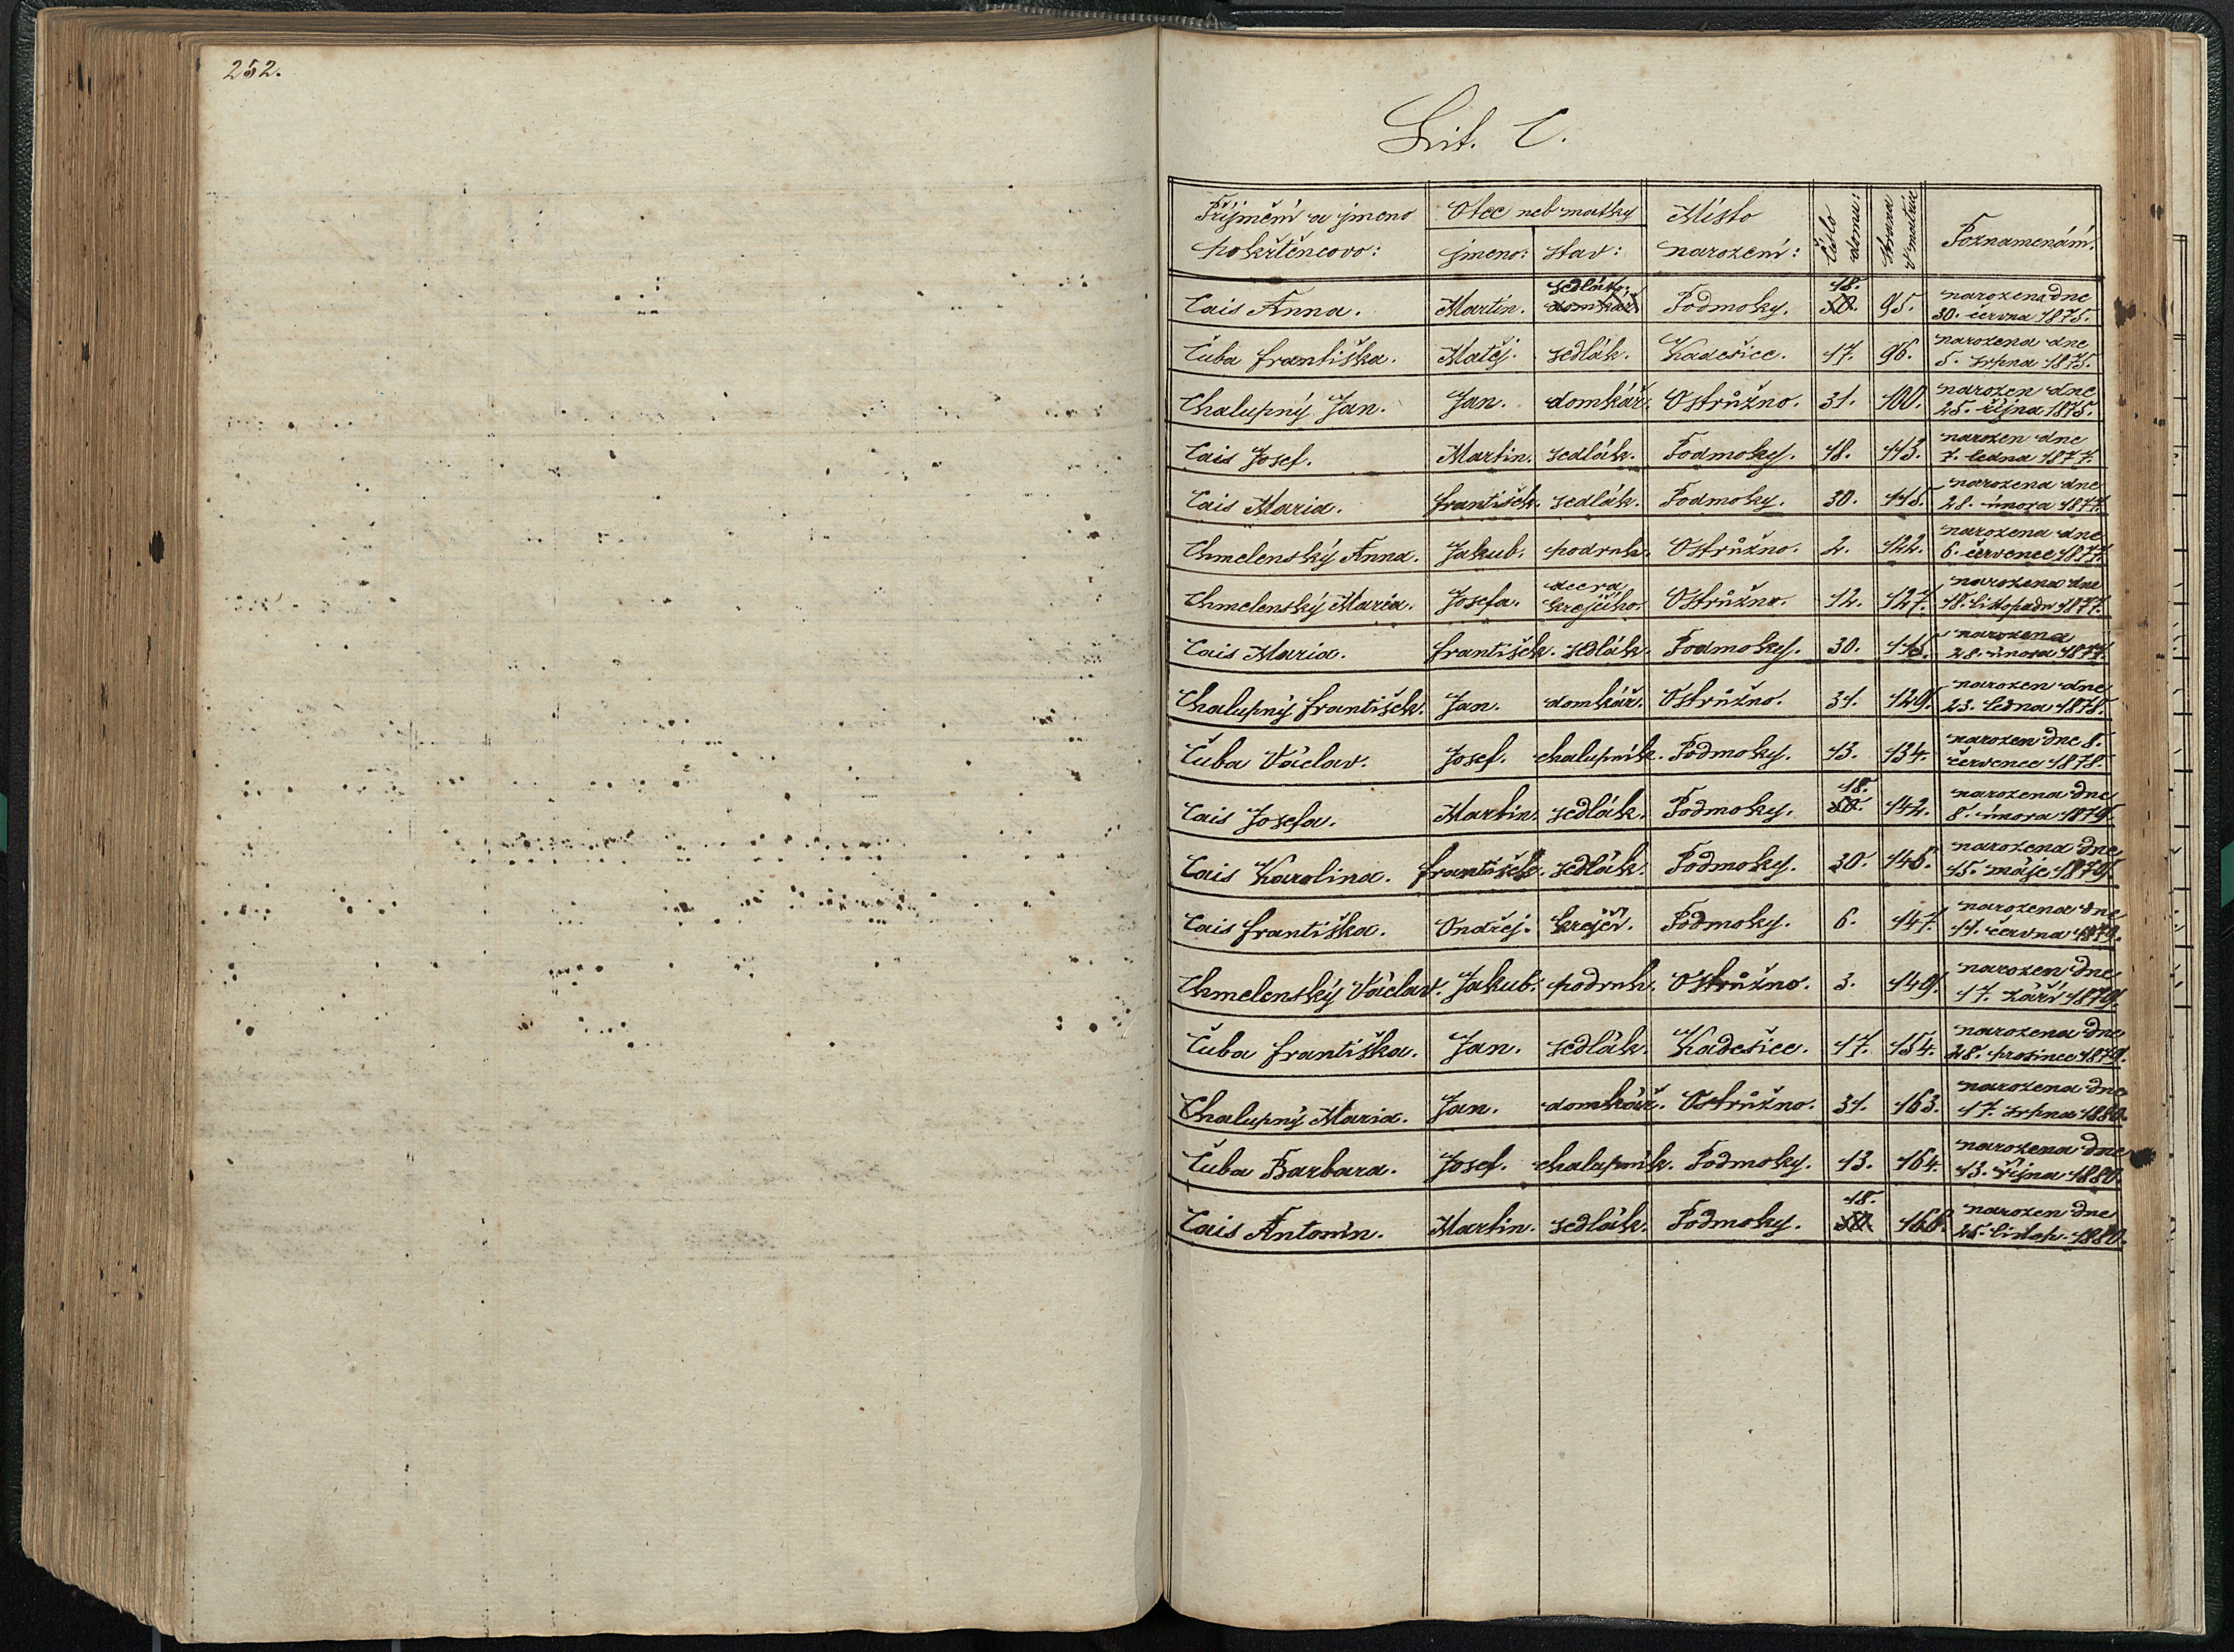 252.
Lit. C.
Příjmění a jmeno Otce neb matky Místo Číslo domu: Strana v matrice Poznamenání.
pokřtěncovo: jmeno: stav: narození:
sedlák. 18. narozena dne
Cais Anna. Martin. domkář Podmoky. 50. 95. 30. června 1875.
narozena dne
Čuba Františka. Matěj. sedlák. Kadešice. 17. 96. 5. srpna 1875.
narozen dne
Chalupný Jan. Jan. domkář. Ostrůžno. 31. 100. 25. října 1875.
narozen dne
Cais Josef. Martin. sedlák. Podmoky. 18. 113. 7. ledna 1877.
narozena dne
Cais Maria. František. sedlák. Podmoky. 30. 115. 28. února 1877.
narozena dne
Chmelenský Anna. Jakub. podruh. Ostrůžno. 2. 122. 6. července 1877.
dcera narozena dne
Chmelenský Maria. Josefa. krejčího. Ostrůžno. 12. 127. 18. listopadu 1877.
narozena
Cais Maria. František. sedlák. Podmoky. 30. 115. 28. února 1877.
narozen dne
Chalupný František. Jan. domkář. Ostrůžno. 31. 129. 23. ledna 1878.
narozen dne 8.
Čuba Václav. Josef. chalupník. Podmoky. 13. 134. července 1878.
18. narozena dne
Cais Josefa. Martin. sedlák. Podmoky. 50. 142. 8. února 1879.
narozena dne
Cais Karolina. František. sedlák. Podmoky. 30. 146. 15. máje 1879.
narozena dne
Cais Františka. Ondřej. krejčí. Podmoky. 6. 147. 11. června 1879.
narozen dne
Chmelenský Václav. Jakub. podruh. Ostrůžno. 3. 149. 17. září 1879.
narozena dne
Čuba Františka. Jan. sedlák. Kadešice. 17. 154. 28. prosince 1879.
narozena dne
Chalupný Maria. Jan. domkář. Ostrůžno. 31. 163. 17. srpna 1880.
narozena dne
Čuba Barbara. Josef. chalupník. Podmoky. 13. 164. 13. října 1880.
18. narozen dne
Cais Antonín. Martin. sedlák. Podmoky. 50. 166. 25. listop. 1880.